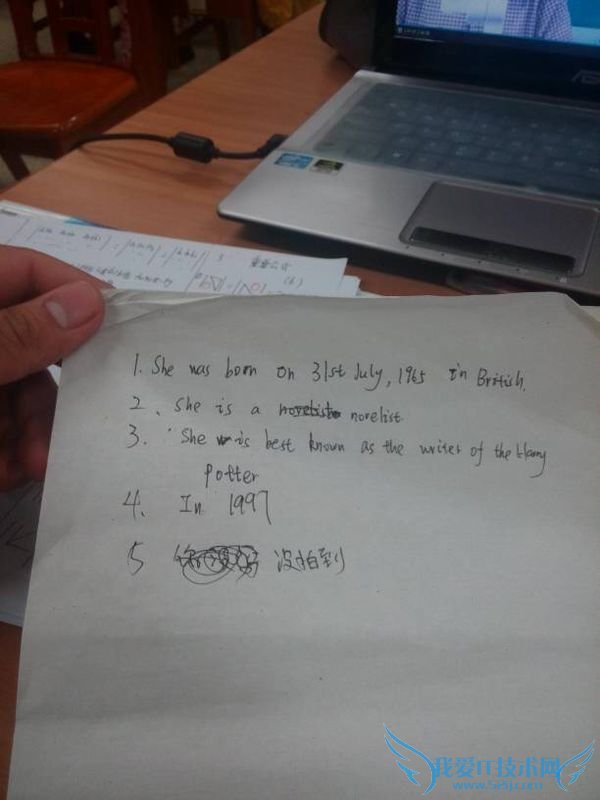 1. She was born on 31st July, 1965 in British.
2. She is a novelist novelist
3. She is best known as the writer of the Harry
Potter
4. In 1997
5 没拍到
我爱IT技术网
www.52ij.com